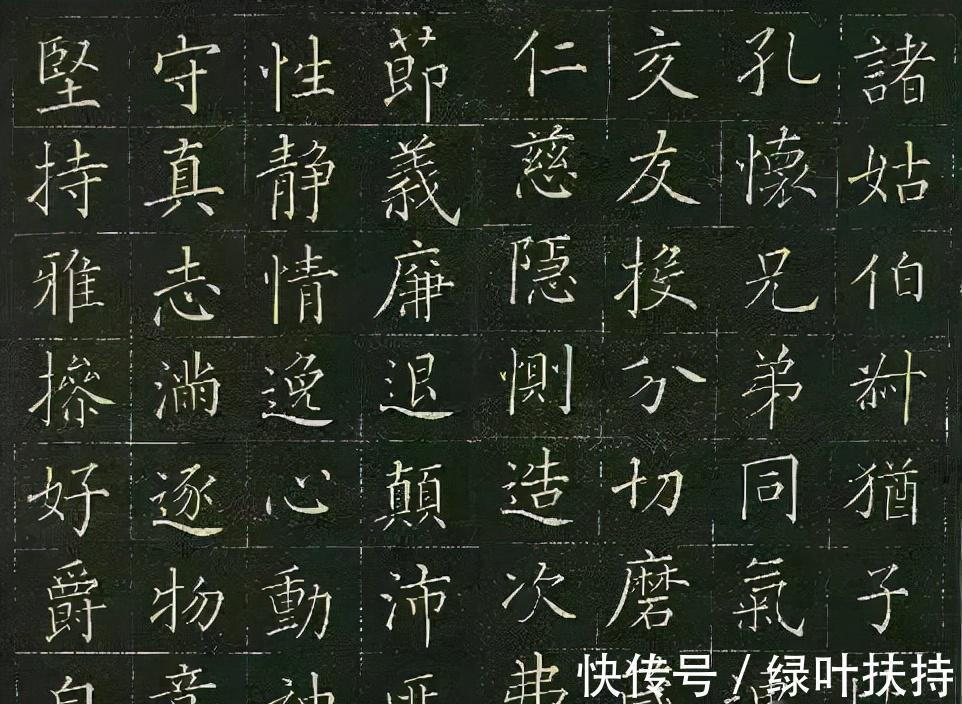 諸姑伯叔猶子
孔懷兄弟同氣
交友投分切磨
仁慈隱惻造次弗
節義廉退顛沛匪
性静情逸心動神
守真志滿逐物意
堅持雅操好爵自
快传号 / 绿叶扶持